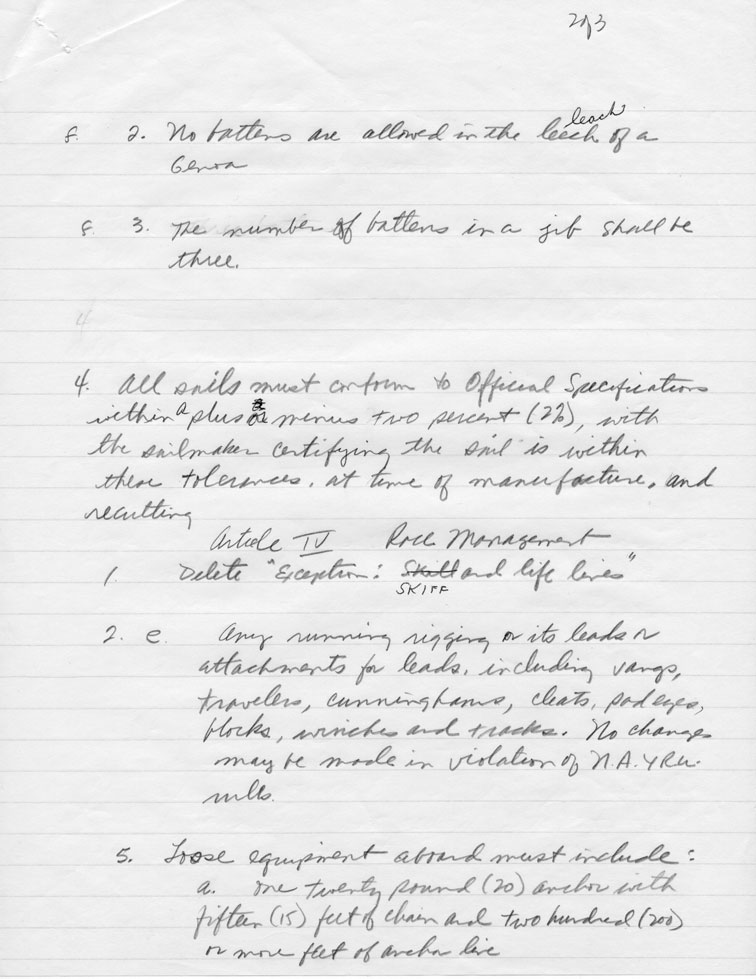 2 of 3
leach
f. 2. No battens are allowed in the leech of a
Genoa
f. 3. The number of battens in a jib shall be
three.
4
4. All sails must conform to Official Specifications
within a plus or minus two percent (2%), with
the sailmaker certifying the sail is within
these tolerances, at time of manufacture, and
recutting
Article IV Race Management
1. Delete "Exception: Skill and life lines"
SKIFF
2. e. Any running rigging or its leads or
attachments for leads, including vangs,
travelers, cunninghams, cleats, padeyes,
blocks, winches and tracks. No changes
may be made in violation of N.A.Y.R.U.
rules.
5. Loose equipment aboard must include:
a. One twenty pound (20) anchor with
fifteen (15) feet of chain and two hundred (200)
or more feet of anchor line